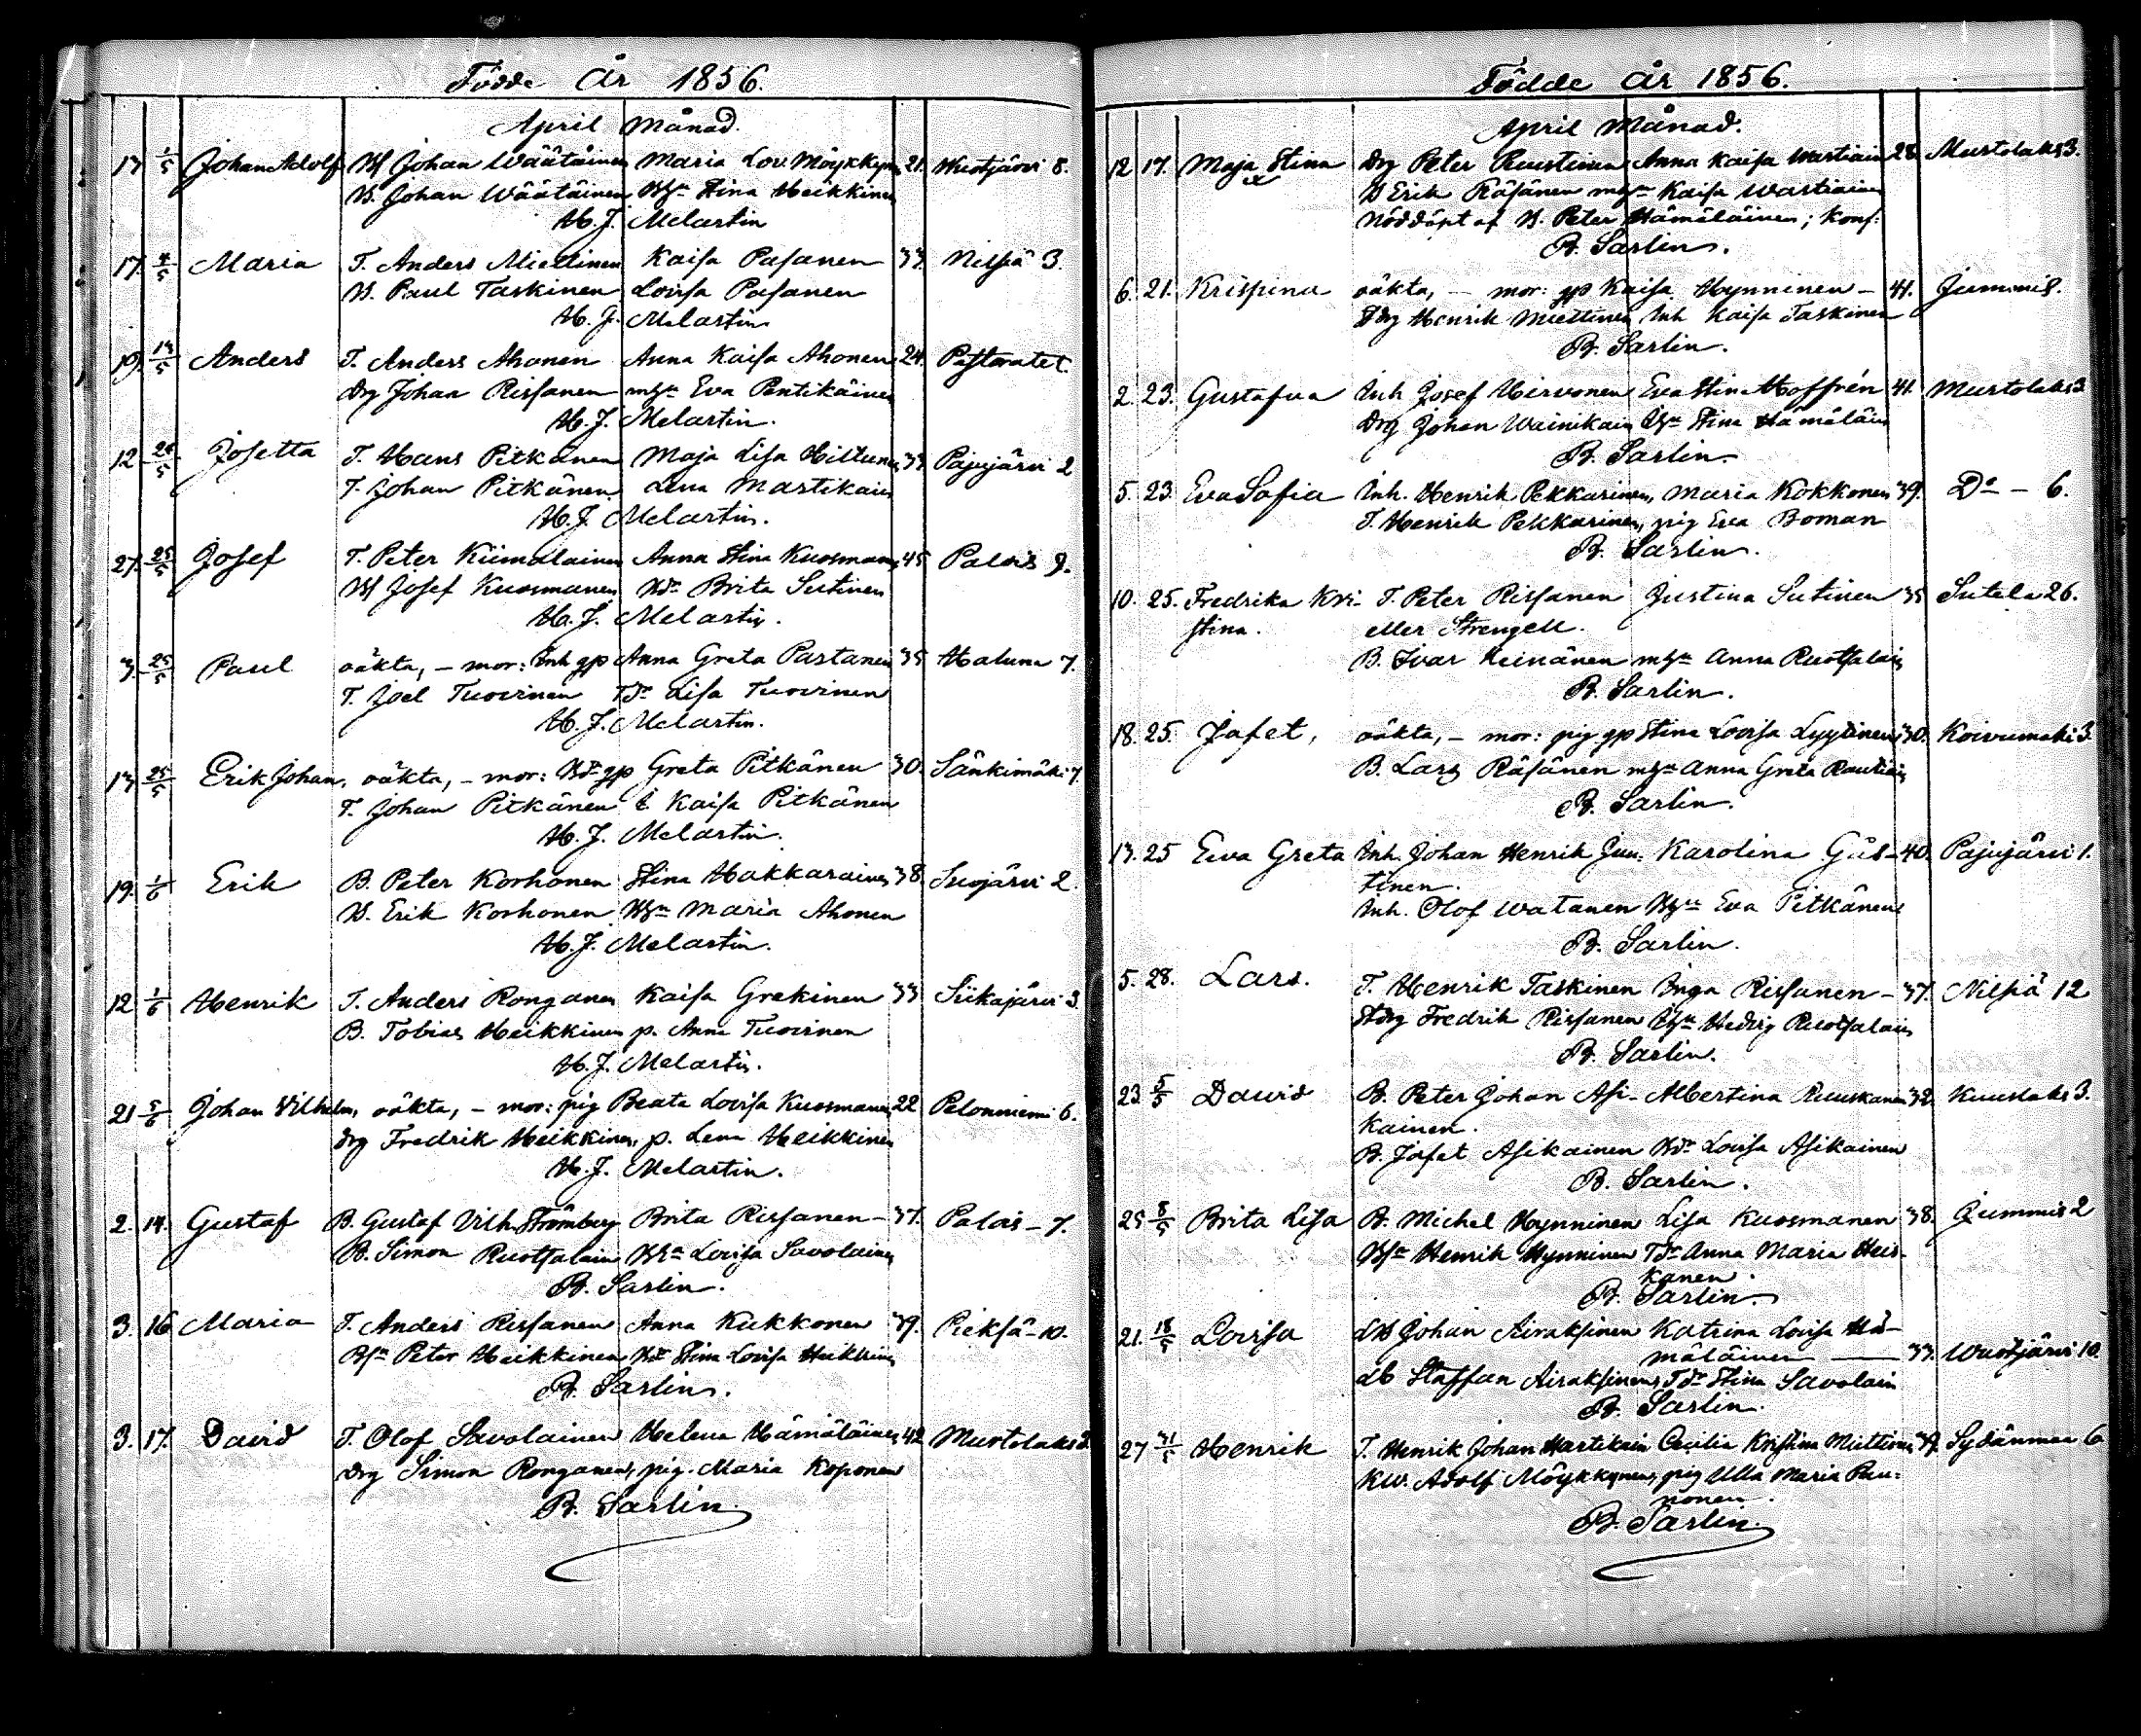 Födde År 1856.
April Månad.
17 1/5 Johan Adolf Bf Johan Wäätäinen Maria Lov. Möykkyn 21. Wuotjärvi 8.
B. Johan Wäätäinen Bh Stina Heikkinen
H. J. Melartin
17. 4/5 Maria T. Anders Miettinen Kaisa Pasanen 37. Nilsiä 3.
B. Paul Taskinen Lovisa Pasanen
H. J. Melartin
19. 13/5 Anders T. Anders Ahonen Anna Kaisa Ahonen 24. Pastoratet
drg Johan Rissanen Eva Pentikäinen
H. J. Melartin.
12 Josetta T. Hans Pitkänen Maja Lisa Hiltunen 33 Pajujärvi 2
T. Johan Pitkänen Lena Martikain
H. J. Melartin.
27. 25/5 Josef T. Peter Kiimalainen Anna Stina Kuosmanen 45 Palois 9.
Josef Kuosmanen Brita Sutinen
H. J. Melartin.
3. 25/5 Paul oäkta, – mor: Inh gp Anna Greta Partanen 35 Haluna 7.
T. Joel Tuovinen Td. Lisa Tuovinen
H. J. Melartin.
13 25/5 Erik Johan, oäkta, – mor: gp Greta Pitkänen 30. Sänkimäki 7
T. Johan Pitkänen Kaisa Pitkänen
H. J. Melartin.
19. 1/6 Erik B. Peter Korhonen Stina Hakkarainen 38. Suojärvi 2.
B. Erik Korhonen Maria Ahonen
H. J. Melartin.
12 1/6 Henrik T. Anders Ronganen Kaisa Grekinen 33 Siikajärvi 3.
B. Tobias Heikkinen p. Anna Tuovinen
H. J. Melartin.
21 5/6 Johan Vilhelm, oäkta, – mor: pig Beata Lovisa Kuosmanen 22 Pelonniemi 6.
drg Fredrik Heikkinen, p. Lena Heikkinen
H. J. Melartin.
2. 14. Gustaf B. Gustaf Vilh. Strömberg Brita Rissanen – 37. Palois – 7.
B. Simon Ruotsalain Lovisa Savolainen
B. Sarlin.
3. 16 Maria T. Anders Rissanen Anna Kukkonen 39. Pieksä – 10.
Peter Heikkinen Stina Lovisa Heikkinen
B. Sarlin.
3. 17. David T. Olof Savolainen Helena Hämäläinen 42 Murtolaks 3
drg Simon Ronganen, pig. Maria Koponen
B. Sarlin.
Födde År 1856.
April Månad.
12 17. Maja Stina drg Peter Ruustinen Anna Kaisa Wartiain 28 Murtolaks 3.
B Erik Räsänen Kaisa Wartiainen
Nöddöpt af B. Peter Hämäläinen; konf:
B. Sarlin.
6. 21. Krispina oäkta, – mor: gp Kaisa Hynninen – 41. Juminis 8.
Henrik Miettinen Inh Kaisa Taskinen
B. Sarlin.
2. 23. Gustafva Inh Josef Hirvonen Eva Stina Hoffrén 41. Murtolaks 3
drg Johan Wainikain Stina Hämäläin
B. Sarlin.
5. 23. Eva Sofia Inh. Henrik Pekkarinen, Maria Kokkonen 39. Do – 6.
T. Henrik Pekkarinen, pig Eva Boman
B. Sarlin.
10. 25. Fredrika Kri- T. Peter Rissanen Justina Sutinen 35 Sutela 26.
stina. eller Strengell.
B. Ivar Keinänen Anna Ruotsalain
B. Sarlin.
18. 25. Jafet, oäkta, – mor: pig gp Stina Lovisa Lyytinen 30. Koivumäki 3
B. Lars Räsänen Anna Greta Rautiain
B. Sarlin.
13. 25 Ewa Greta Inh. Johan Henrik Jun- Karolina Güs- 40. Pajujärvi 1.
tinen.
Inh. Olof Watanen Eva Pitkänen
B. Sarlin.
5. 28. Lars. T. Henrik Taskinen Inga Rissanen – 37. Nilsiä 12
Fredrik Rissanen Hedvig Ruotsalain
B. Sarlin.
23 5/5 David B. Peter Johan Asi- Albertina Ruuskanen 32. Kuuslaks 3.
kainen.
B. Jafet Asikainen Lovisa Asikainen
B. Sarlin.
25 8/5 Brita Lisa B. Michel Hynninen Lisa Kuosmanen 38. Juminis 2
Henrik Hynninen Anna Maria Heis-
kanen.
B. Sarlin.
21. 18/5 Lovisa Johan Airaksinen Katrina Lovisa Hä-
mäläinen — 33. Wuotjärvi 10.
Staffan Airaksinen, Stina Savolain
B. Sarlin.
27 31/5 Henrik T. Henrik Johan Hartikain Cecilia Kristina Miettinen 39. Sydänmaa 6
Adolf Möykkynen, pig Ulla Maria Pau-
nonen.
B. Sarlin.